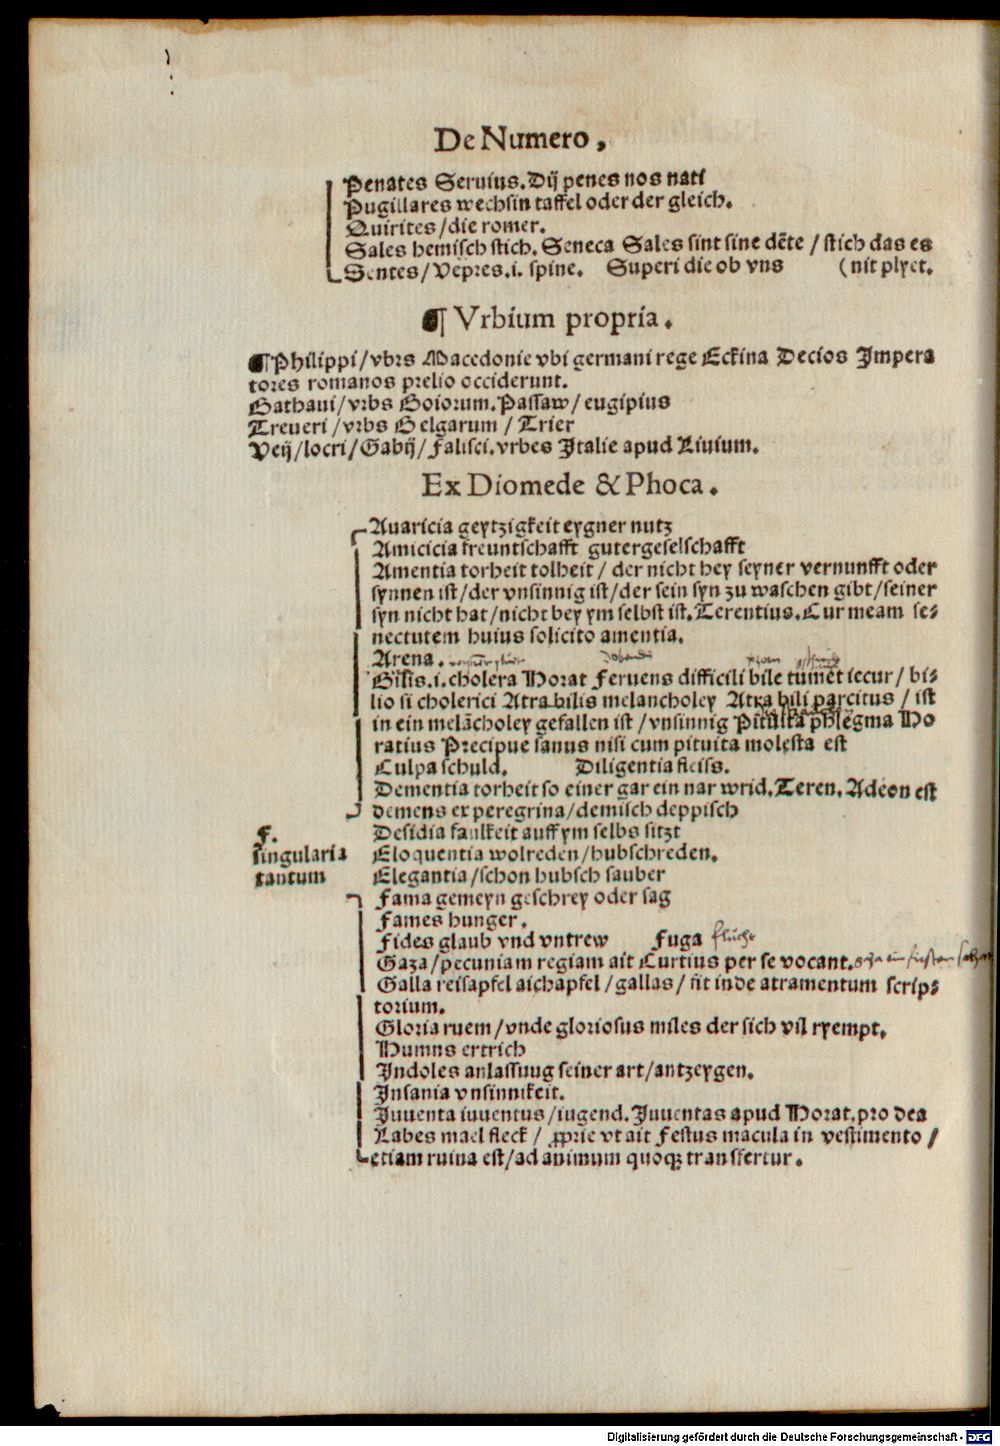 De Numero.
Penates Seruius. Dij penes nos nati
Pugillares wechsin taffel oder der gleich.
Quirites/die romer.
Sales hemisch stich. Seneca Sales sint sine dẽte / stich das es
Sentes/Vepres.i. spine. Superi die ob vns (nit plyet.
¶ Vrbium propria.
¶Philippi/vbrs Macedonie vbi germani rege Eckina Decios Impera
tores romanos prelio occiderunt.
Bathaui/vrbs Boiorum. Passaw/eugipius
Treueri/vrbs Belgarum / Trier
Veij/locri/Gabij/Falisci.vrbes Italie apud Liuium.
Ex Diomede & Phoca.
Auaricia geytzigkeit eygner nutz
Amicicia freuntschafft gutergeselschafft
Amentia torheit tolheit / der nicht bey seyner vernunfft oder
synnen ist/der vnsinnig ist/der sein syn zu waschen gibt/seiner
syn nicht hat/nicht bey ym selbst ist. Terentius. Cur meam se⸗
nectutem huius solicito amentia.
Arena.
Bilis.i. cholera Horat Feruens difficili bile tumet iecur / bi⸗
lio si cholerici Atra bilis melancholey Atra bili parcitus / ist
in ein melãcholey gefallen ist /vnsinnig Pituita phlegma Ho
ratius Precipue sanus nisi cum pituita molesta est
Culpa schuld. Diligentia fleiss.
Dementia torheit so einer gar ein nar wrid. Teren. Adeon est
demens ex peregrina/demisch deppisch
F.
singularia
tantum
Desidia faulkeit auff ym selbs sitzt
Eloquentia wolreden/hubschreden.
Elegantia/schon hubsch sauber
Fama gemeyn geschrey oder sag
Fames hunger.
Fides glaub vnd vntrew Fuga flucht
Gaza/pecuniam regiam ait Curtius per se vocant.
Galla reisapfel aichapfel/gallas/fit inde atramentum scrip⸗
torium.
Gloria ruem/vnde gloriosus miles der sich vil ryempt.
Humus ertrich
Indoles anlassung seiner art/antzeygen.
Insania vnsinnikeit.
Juuenta iuuentus/iugend. Juuentas apud Horat. pro dea
Labes mael fleck / ꝓprie vt ait Festus macula in vestimento /
etiam ruina est/ad animum quoqꝫ transfertur.
Digitalisierung gefördert durch die Deutsche Forschungsgemeinschaft - DFG